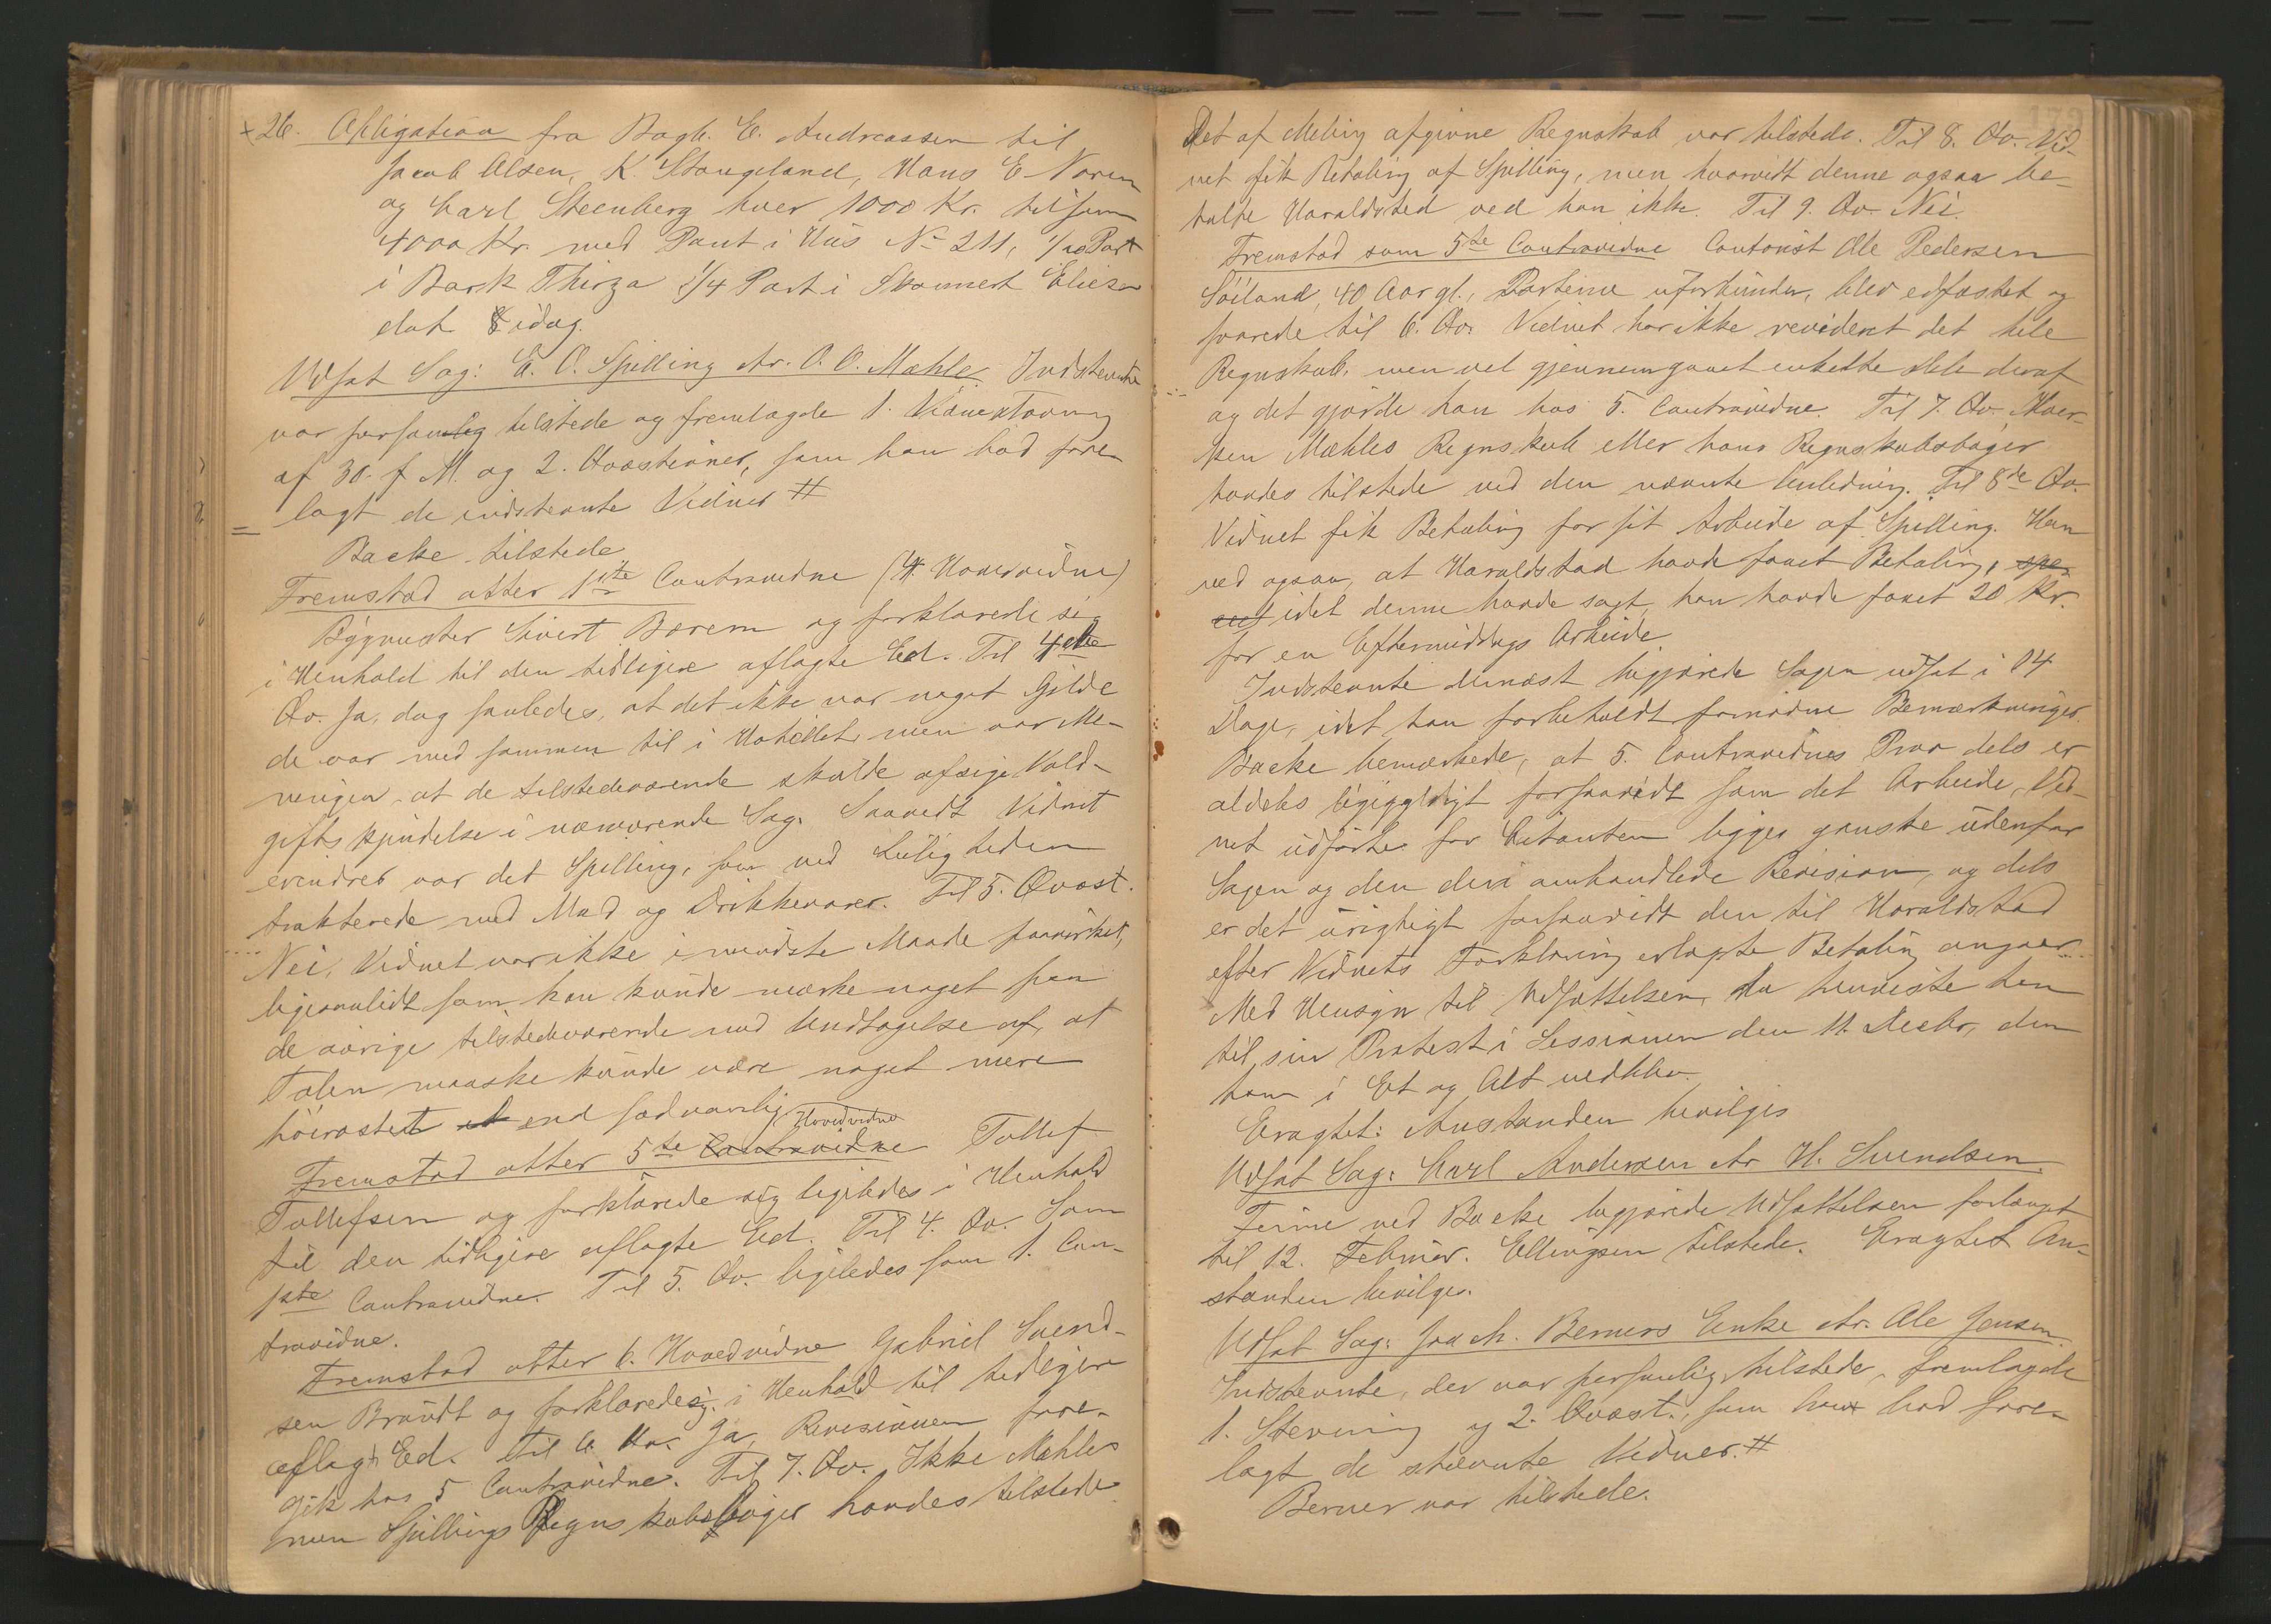 x 26. Obligation fra Bagh. E. Andreassen til
Jacob Olsen, K. Stangeland, Hans E Noren
og Carl Steenberg hver 1000 Kr. tilsam
4000 Kr. med Pant i Hus No 211, 1/20 Part
i Bark Thirza 1/4 Part i Skonnert Elieser
dat. idag.
Udsat Sag: E. O. Spilling Ctr. O. O. Mæhle. Indstevnte
var personlig tilstede og fremlagde 1. Vidnestevning
af 30. f. M. og 2. Qvæstioner, som han bad fore-
lagt de indstevnte Vidner #
Backe tilstede
Fremstod atter 1ste Contravidne (4. Hovedvidne)
Bygmester Sivert Børem og forklarede sig
i Henhold til den tidligere aflagte Ed. Til 4de
Qv. Ja, dog saaledes, at det ikke var noget Gilde
de var med sammen til i Hotellet, men var Me-
ningen, at de tilstedeværende skulde afsige Vold-
giftskjendelse i nærværende Sag. Saavidt Vidnet
erindrer var det Spilling, som ved Leilig heden
trakterede med Mad og Drikkevarer. Til 5. Qvæst.
Nei, Vidnet var ikke i mindste Maade paavirket,
ligesaalidt som han kunde mærke noget paa
de øvrige tilstedeværende med Undtagelse af, at
Talen maaske kunde være noget mere
høirøstet end sædvanlig
Hovedvidne
Fremstod atter 5te Contravidne Tollef
Tollefsen og forklarede sig ligeledes i Henhold
til den tidligere aflagte Ed. Til 4. Qv. Som
1ste Contravidne. Til 5. Qv. ligeledes som 1. Con-
travidne.
Fremstod atter 6. Hovedvidne Gabriel Svend-
sen Brandt og forklarede sig i Henhold til tidligere
aflagt Ed. Til 6. Qv. Ja, Revisionen fore-
gik hos 5 Contravidne. Til 7. Qv. Ikke Mæhles
men Spillings Regnskabsbøger havdes tilstede
Det af Meling afgivne Regnskab var tilstede. Til 8. Qv. Vid-
net fik Betaling af Spilling, men hvorvidt denne ogsaa be-
talte Haraldstad ved han ikke. Til 9. Qv. Nei.
Fremstod som 5te Contravidne Contorist Ole Pedersen
Söiland, 40 Aar gl., Parterne uforbunden, blev edfæstet og
svarede til 6. Qv. Vidnet har ikke revideret det hele
Regnskab, men vel gjennemgaaet enkelte Dele deraf
og det gjorde han hos 5. Contravidne. Til 7. Qv. Hver-
ken Mæhles Regnskab eller hans Regnskabsbøger
havdes tilstede ved den nævnte Anledning. Til 8de Qv.
Vidnet fik Betaling for sit Arbeide af Spilling. Han
ved ogsaa, at Haraldstad havde faaet Betaling,
idet denne havde sagt, han havde faaet 20 Kr.
for en Eftermiddags Arbeide
Indstevnte dernæst begjærede Sagen udsat i 14
Dage, idet han forbeholdt fornødne Bemærkninger.
Backe bemærkede, at 5. Contravidnes Prov dels er
aldeles ligegyldigt forsaavidt som det Arbeide, Vid-
net udførte for Citanten ligger ganske udenfor
Sagen og den deri omhandlede Revision, og dels
er det urigtigt forsaavidt den til Haraldstad
efter Vidnets Forklaring erlagte Betaling angaar.
Med Hensyn til Udsættelsen, da henviste han
til sin Protest i Sessionen den 11. Decbr, den
han i Et og Alt vedblev.
Eragtet: Anstanden bevilges
Udsat Sag: Carl Andersen Ctr H. Svendsen.
Feime ved Backe begjærede Udsættelsen forlænget
til 12. Februar. Ellingsen tilstede. Eragtet An-
standen bevilges.
Udsat Sag: Joach. Berners Enke Ctr. Ole Jensen.
Indstevnte, der var personlig tilstede, fremlagde
1. Stevning og 2. Qvæst., som han bad fore-
lagt de stævnte Vidner. #
Berner var tilstede.